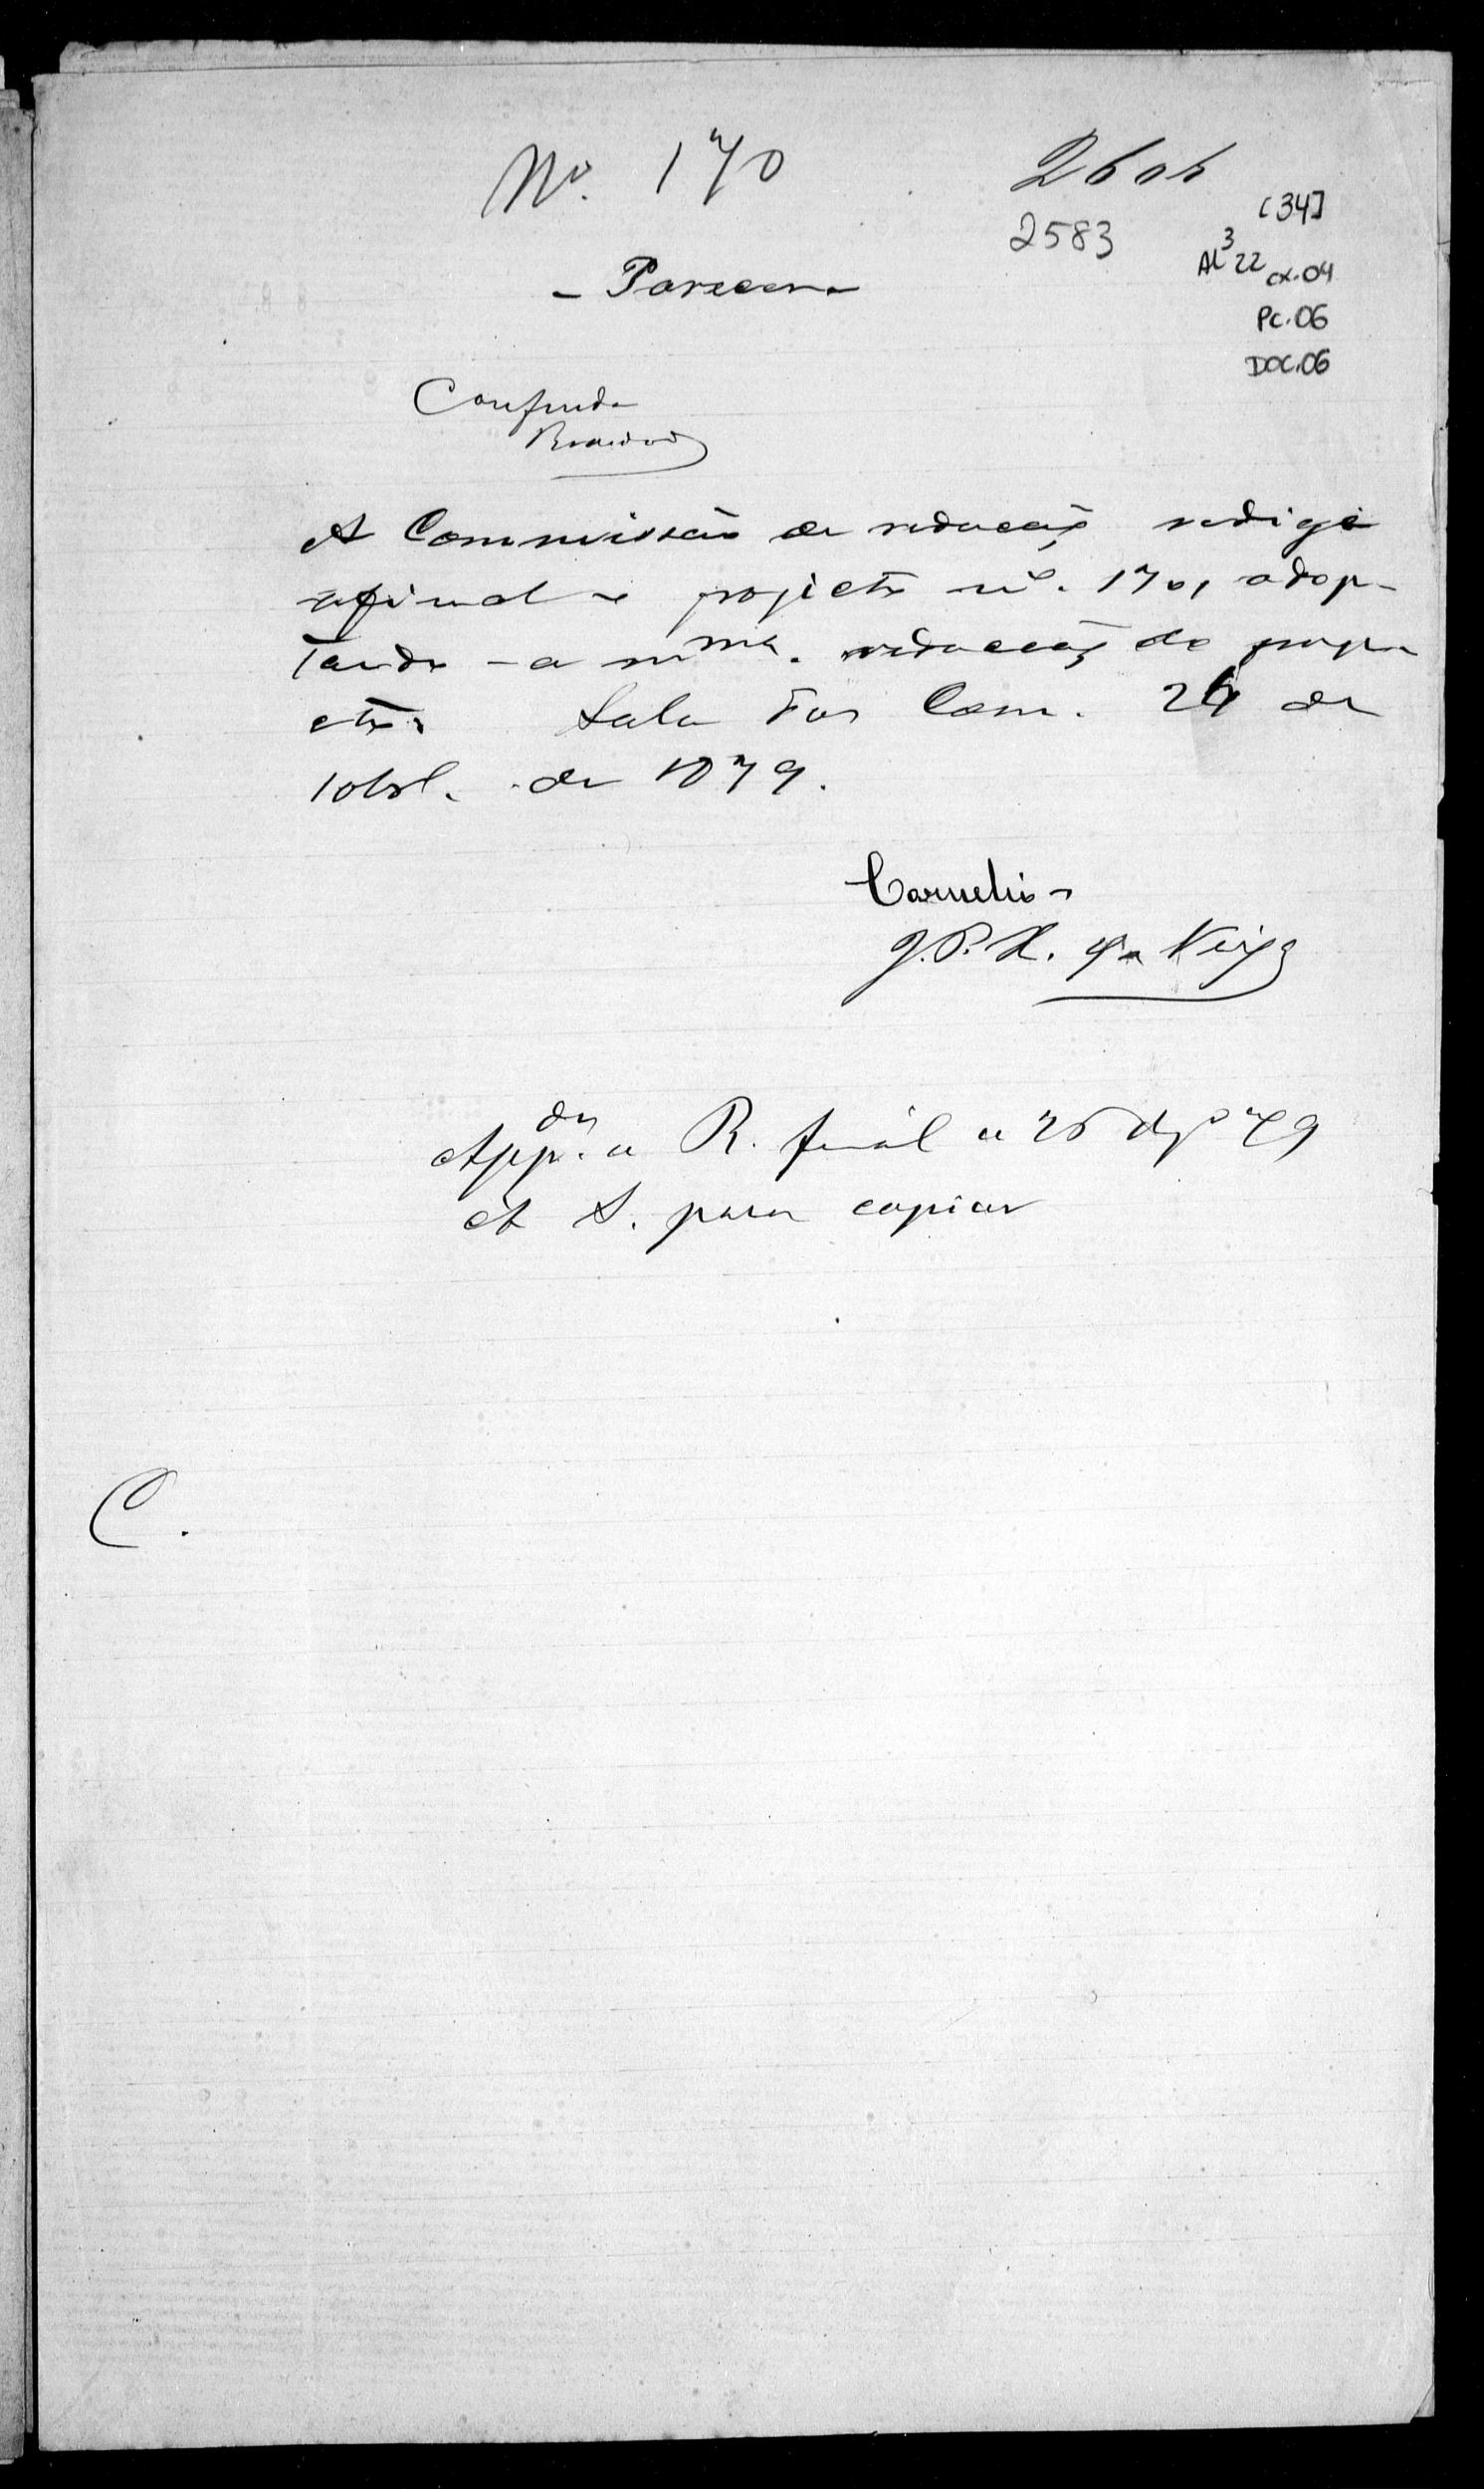 Nº. 170
2606
2583
[34]
AL 3 22 cx.04
Pc.06
DOC.06
- Parecer -
Conferida
A Commissão de redacção redige
afinal o projecto nº. 170, adop-
tando - a mma. redacção do proje-
cto. Sala das Com. 24 de
de 1879.
Cornelio
J.P.X. da Veiga
Appda. a R. final a 25 79
A S. para copiar
C.